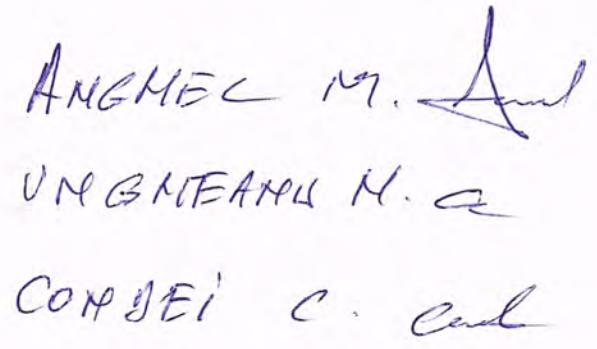 ANGHEL M.
UNGUREANU M.
CONDEI C.